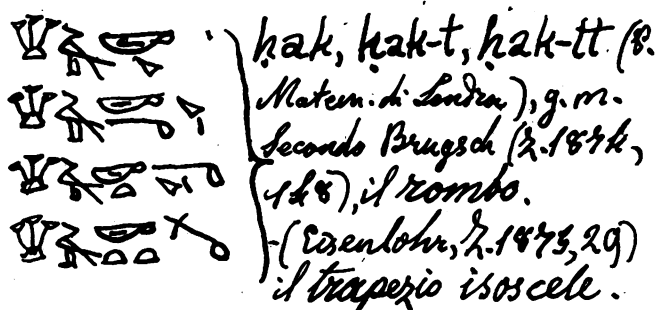 ḥak, ḥak-t, ḥak-tt (P.
Matem. di Londra), g. m.
Secondo Brugsch (Z. 1874,
148), il rombo.
-(Eisenlohr, Z. 1875, 29)
il trapezio isoscele.